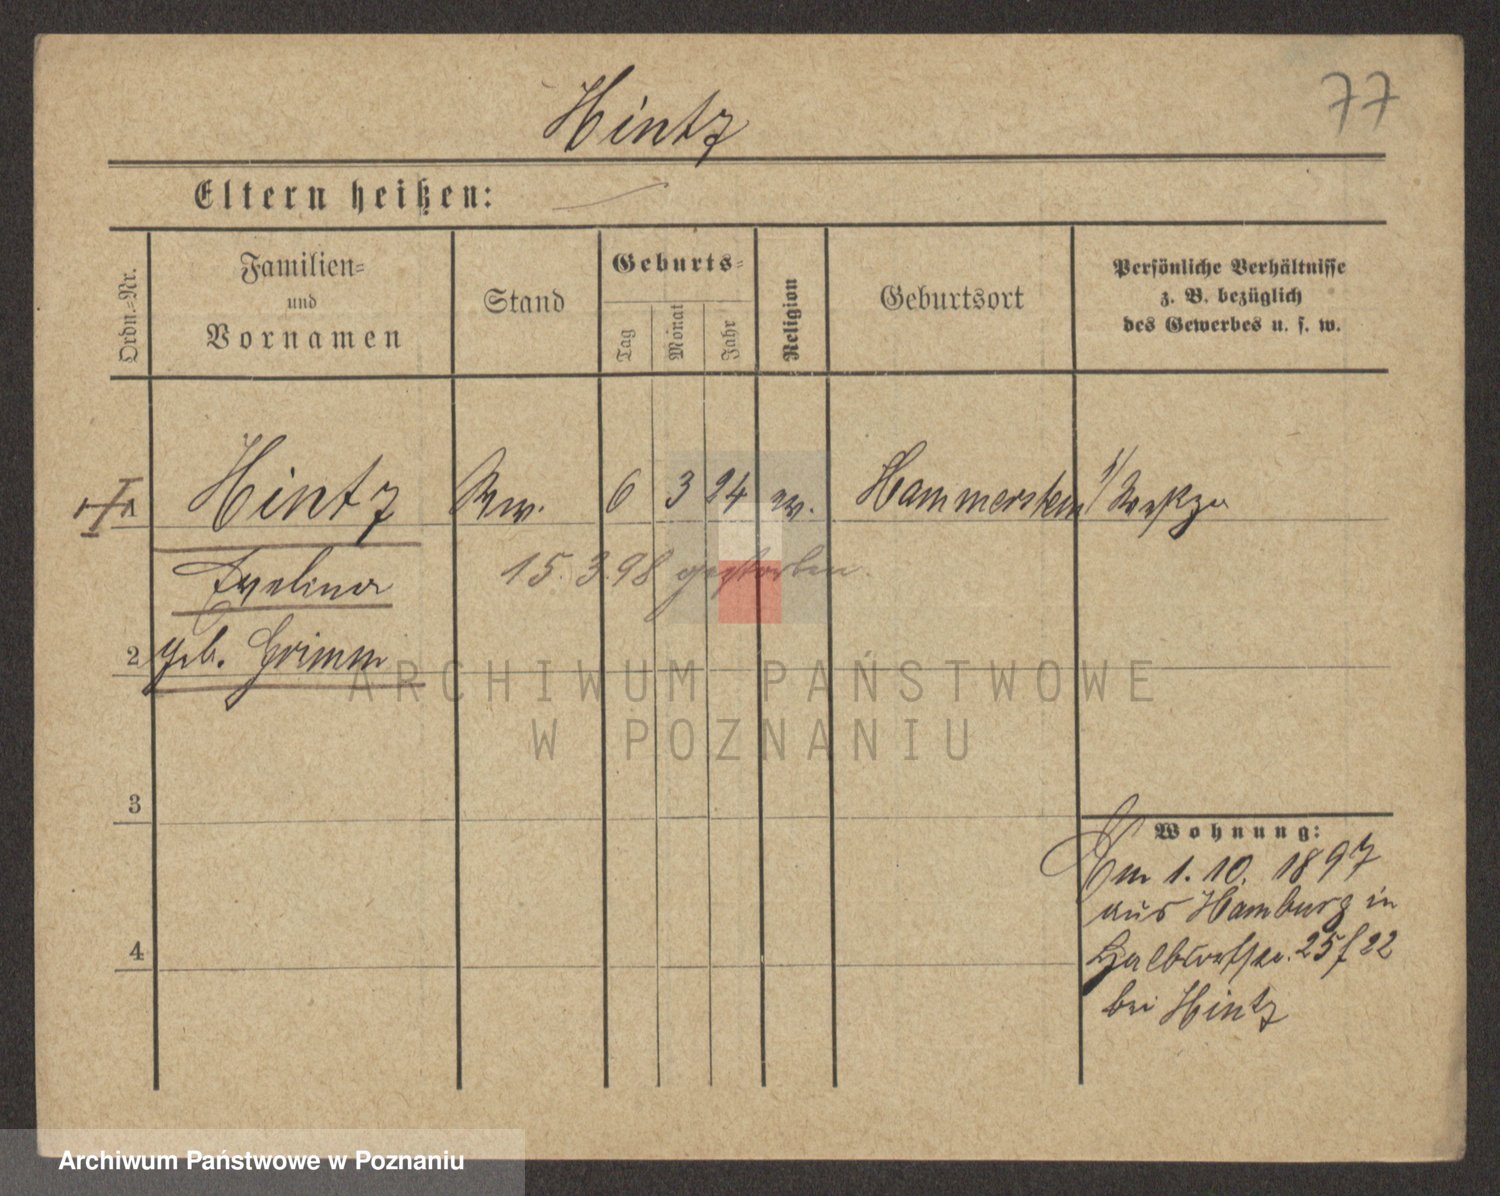 Hintz
77
Eltern heißen:
Ordn.-Nr.
Familien-
und
Vornamen
Stand
Geburts-
Tag
Monat
Jahr
Religion
Geburtsort
Persönliche Verhältnisse
z. B. bezüglich
des Gewerbes u. s. w.
Hintz Ww. 6 3 24 ev. Hammerstein
Evelina
15. 3. 98 gestorben.
2 geb. Grimm
ARCHIWUM PAŃSTWOWE
W POZNANIU
3
Wohnung:
Am 1. 10. 1897
aus Hamburg in
4
Halbdorfstr. 25 f 22
bei Hintz
Archiwum Państwowe w Poznaniu